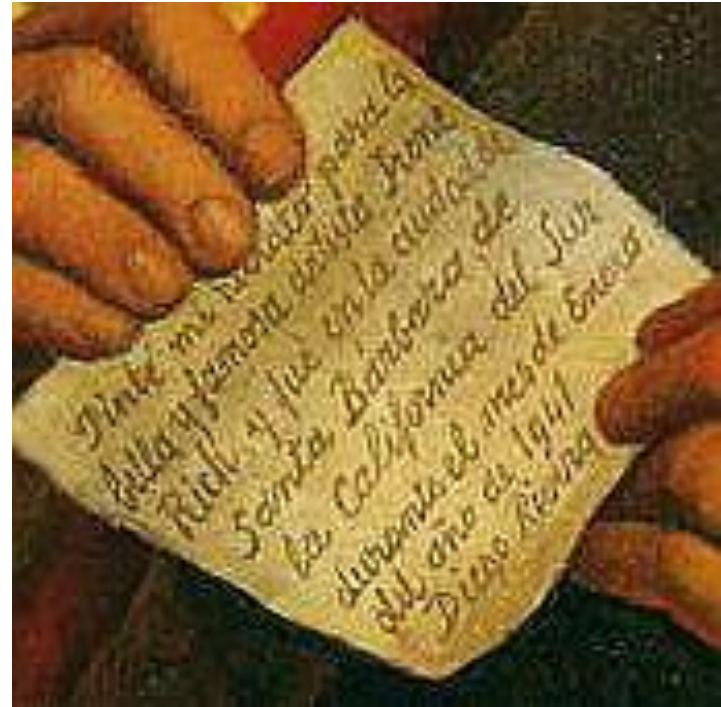 Pinté mi retrato para la
bella y famosa artista Irene
Rich y fué en la ciudad de
Santa Bárbara de
la California del Sur
durante el mes de Enero
del año de 1941
Diego Rivera